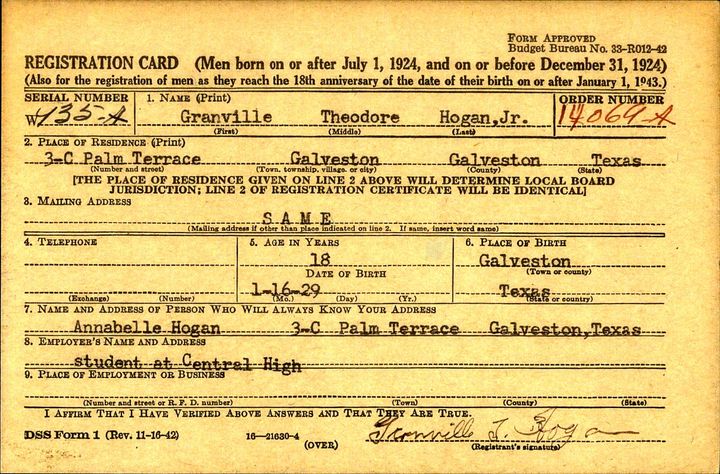 FORM APPROVED
Budget Bureau No. 33-R012-42
REGISTRATION CARD (Men born on or after July 1, 1924, and on or before December 31, 1924)
(Also for the registration of men as they reach the 18th anniversary of the date of their birth on or after January 1, 1943.)
SERIAL NUMBER 1. NAME (Print) ORDER NUMBER
W 135-A Granville Theodore Hogan,Jr. 14069-A
(First) (Middle) (Last)
2. PLACE OF RESIDENCE (Print)
3-C Palm Terrace Galveston Galveston Texas
(Number and street) (Town, township, village, or city) (County) (State)
[THE PLACE OF RESIDENCE GIVEN ON LINE 2 ABOVE WILL DETERMINE LOCAL BOARD
JURISDICTION; LINE 2 OF REGISTRATION CERTIFICATE WILL BE IDENTICAL]
3. MAILING ADDRESS
S A M E
(Mailing address if other than place indicated on line 2. If same, insert word same)
4. TELEPHONE 5. AGE IN YEARS 6. PLACE OF BIRTH
18 Galveston
DATE OF BIRTH (Town or county)
1-16-29 Texas
(Exchange) (Number) (Mo.) (Day) (Yr.) (State or country)
7. NAME AND ADDRESS OF PERSON WHO WILL ALWAYS KNOW YOUR ADDRESS
Annabelle Hogan 3-C Palm Terrace Galveston,Texas
8. EMPLOYER'S NAME AND ADDRESS
student at Central High
9. PLACE OF EMPLOYMENT OR BUSINESS
(Number and street or R. F. D. number) (Town) (County) (State)
I AFFIRM THAT I HAVE VERIFIED ABOVE ANSWERS AND THAT THEY ARE TRUE.
DSS Form 1 (Rev. 11-16-42) 16—21630-4 Granville T. Hogan
(OVER) (Registrant's signature)